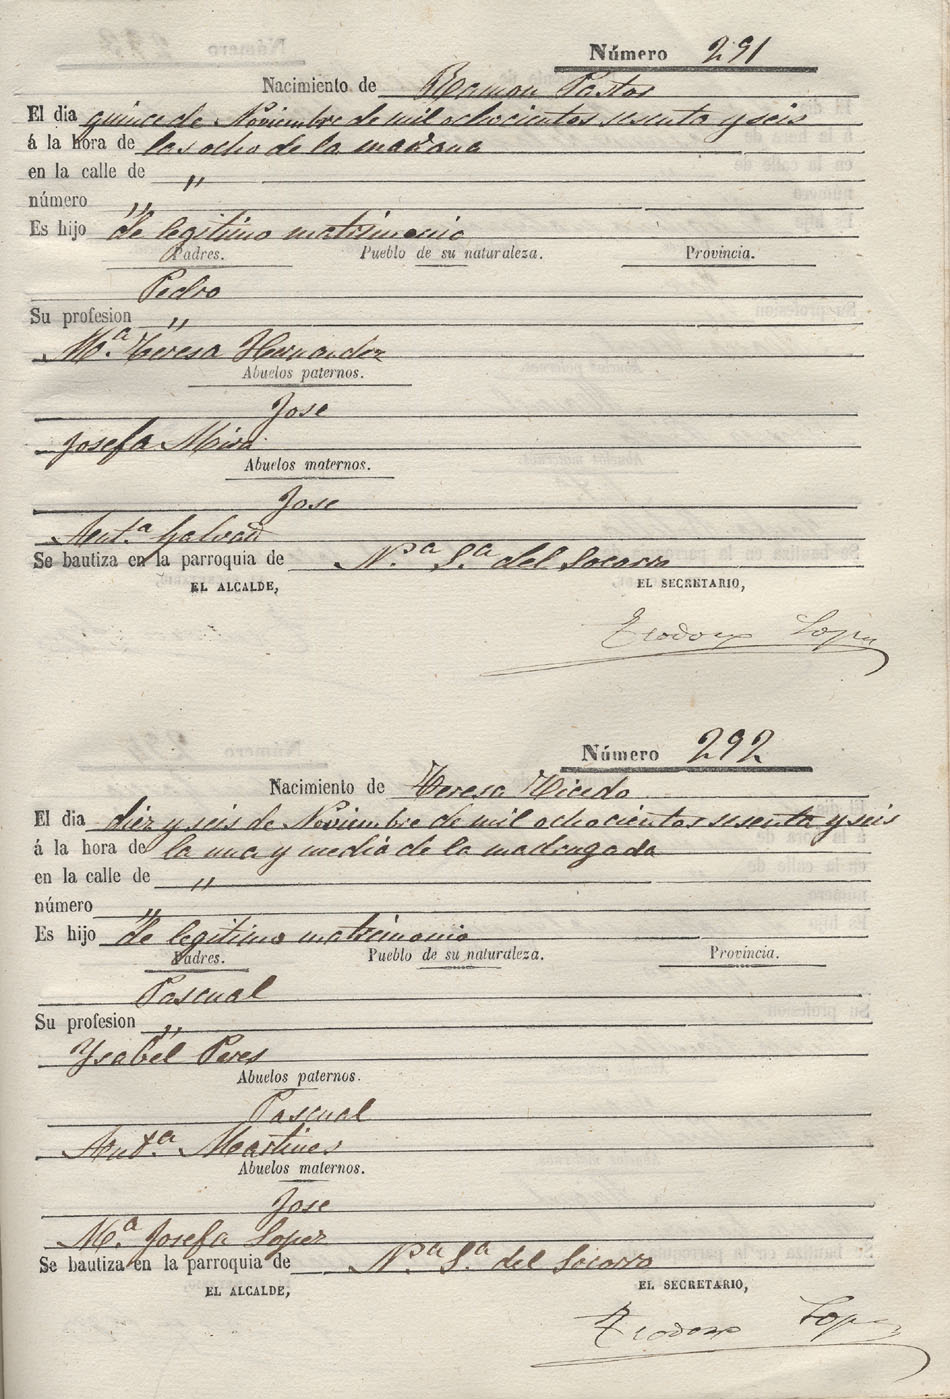 Número 291
Nacimiento de Ramon Pastor
El dia quince de Noviembre de mil ochocientos sesenta y seis
á la hora de las ocho de la mañana
en la calle de "
número "
Es hijo de legitimo matrimonio
Padres. Pueblo de su naturaleza. Provincia.
Pedro
Su profesion "
Mª. Teresa Hernandez
Abuelos paternos.
Jose
Josefa Mira
Abuelos maternos.
Jose
Antª. Galvañ
Se bautiza en la parroquia de Nª Sª del Socorro
EL ALCALDE, EL SECRETARIO,
Teodoro Lopez
Número 292
Nacimiento de Teresa Aicedo
El dia diez y seis de Noviembre de mil ochocientos sesenta y seis
á la hora de la una y media de la madrugada
en la calle de "
número "
Es hijo de legitimo matrimonio
Padres. Pueblo de su naturaleza. Provincia.
Pascual
Su profesion "
Ysabel Peres
Abuelos paternos.
Pascual
Antª. Martines
Abuelos maternos.
Jose
Mª. Josefa Lopez
Se bautiza en la parroquia de Nª Sª del Socorro
EL ALCALDE, EL SECRETARIO,
Teodoro Lopez